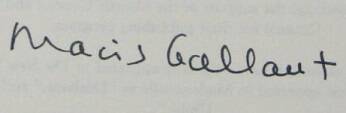 Mavis Gallant